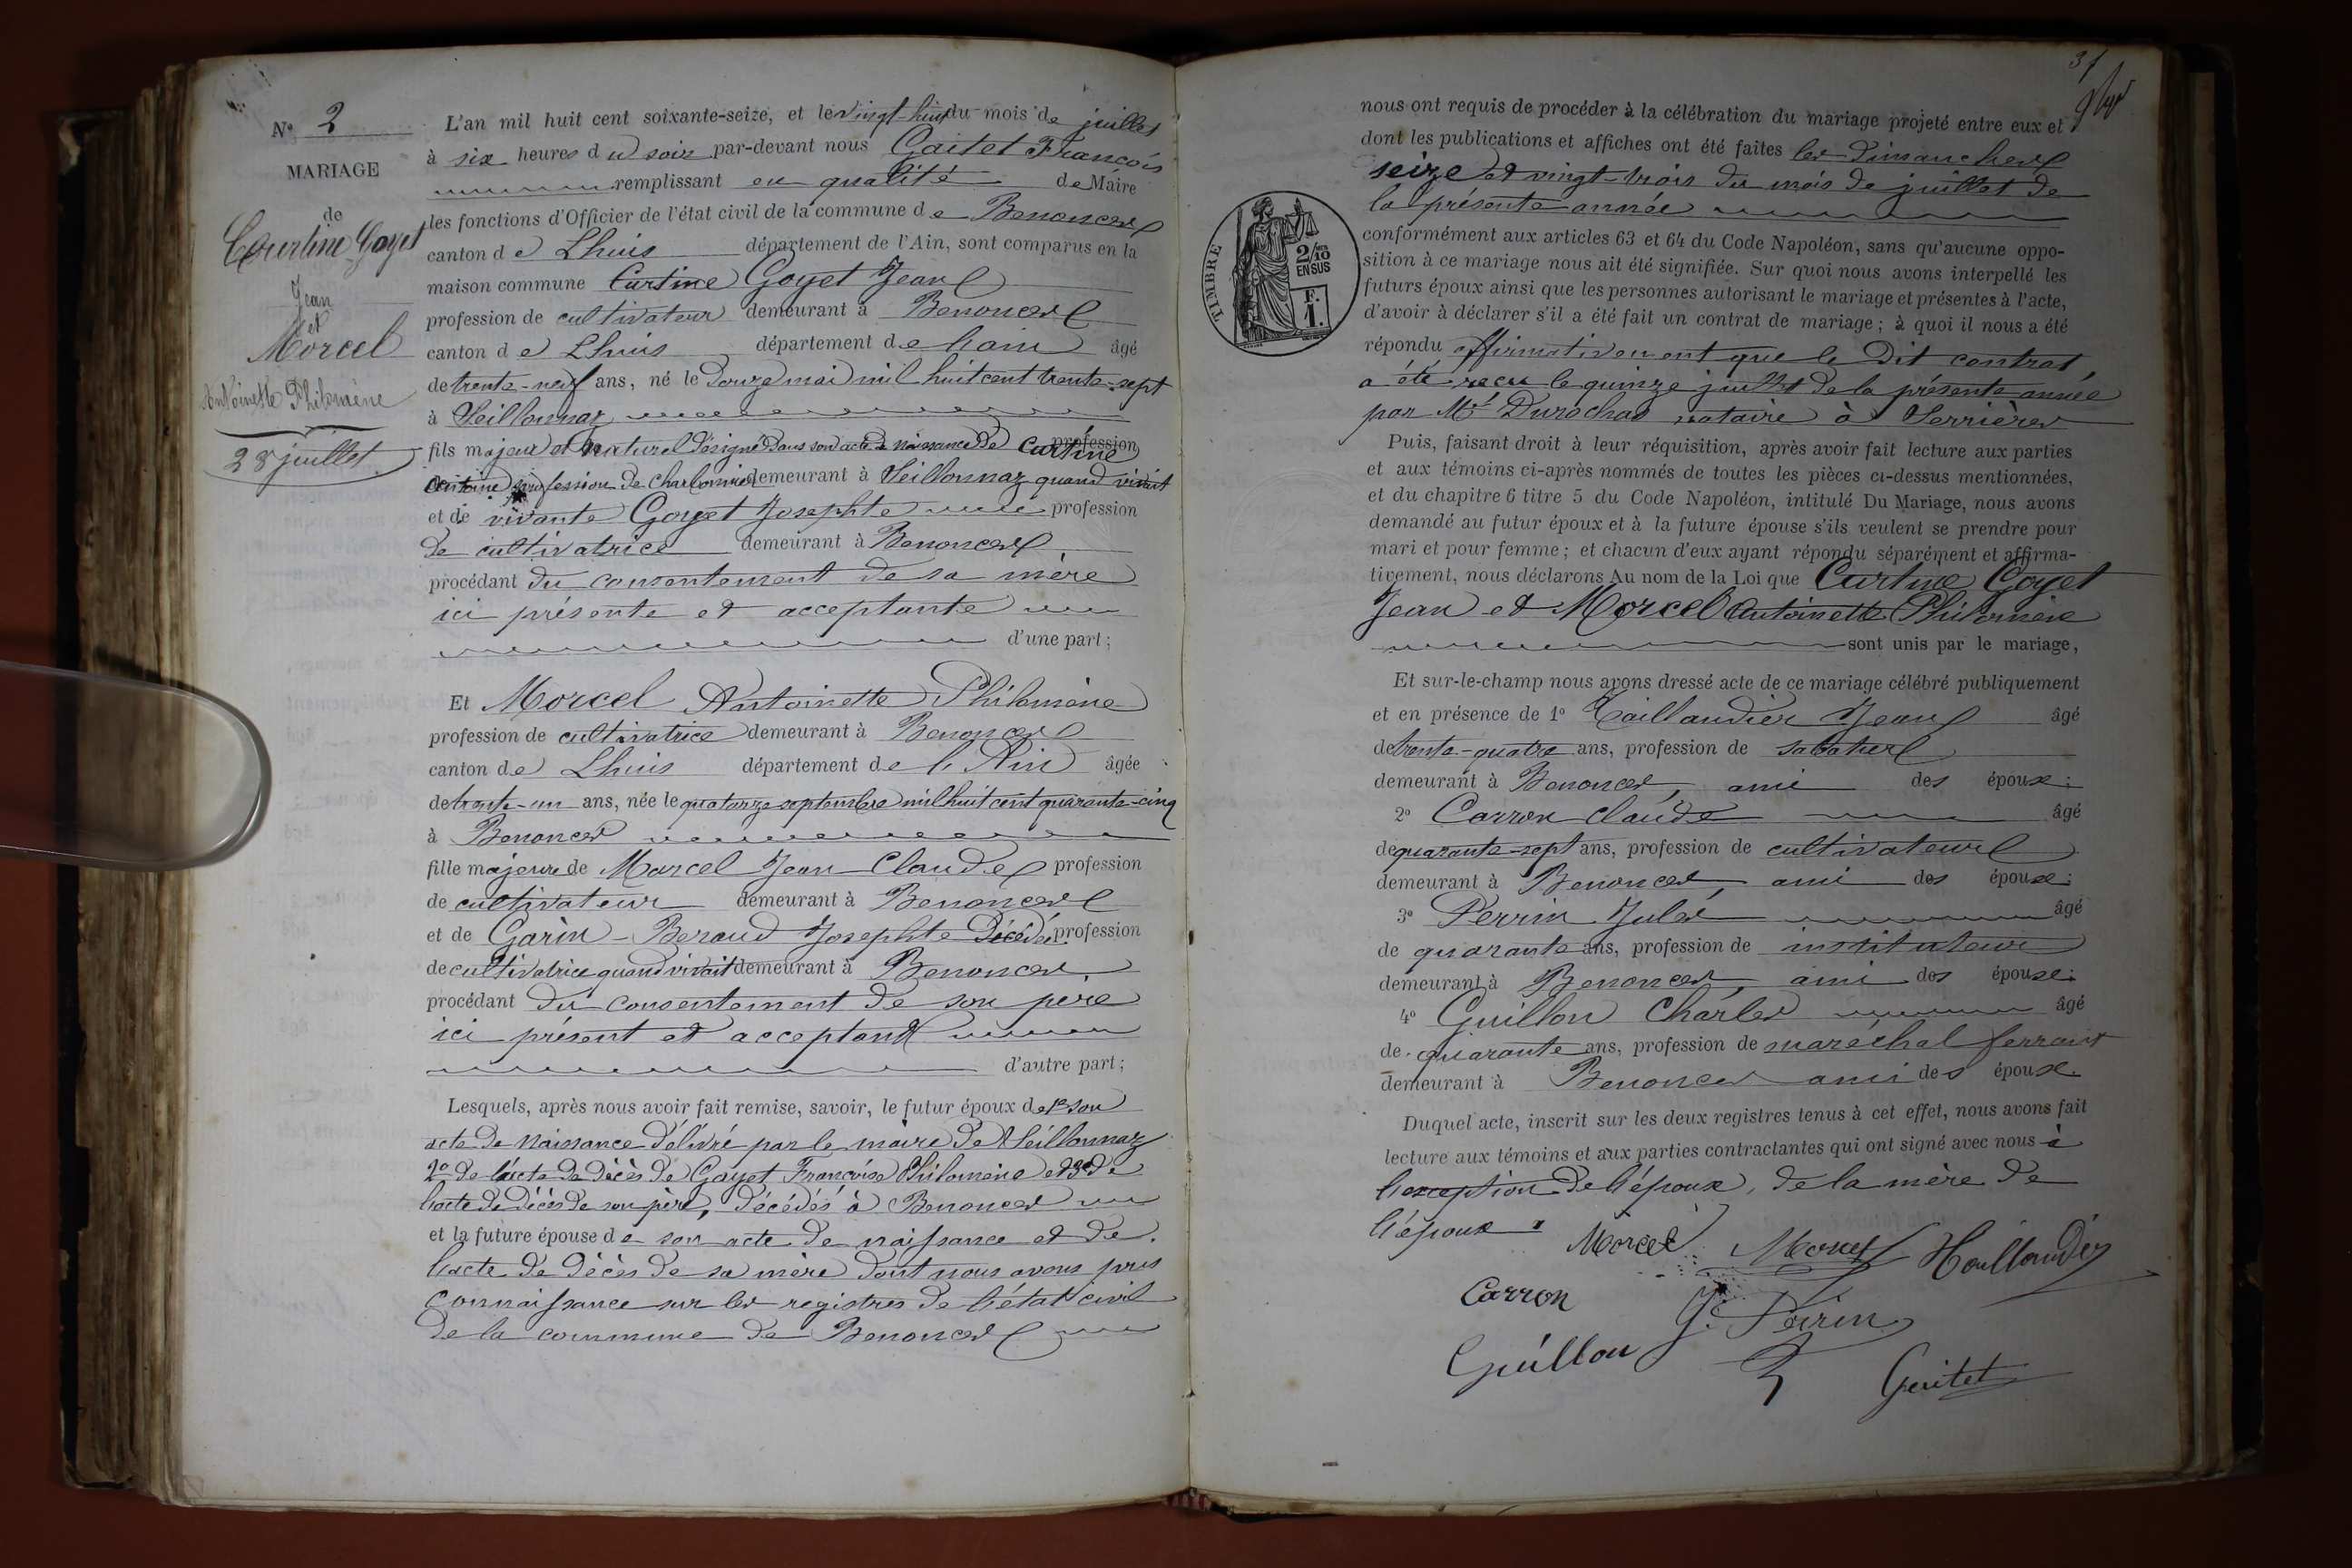 N° 2
MARIAGE
de
Courtine Goyet
Jean
et
Morcel
Antoinette Philomène
28 juillet
L'an mil huit cent soixante-seize, et le vingt-huit du mois de juillet
à six heures du soir par-devant nous Gaitet François
remplissant en qualité de Maire
les fonctions d'Officier de l'état civil de la commune de Benonces
canton de Lhuis département de l'Ain, sont comparus en la
maison commune Curtine Goyet Jean
profession de cultivateur demeurant à Benonces
canton de Lhuis département de l'ain âgé
de trente-neuf ans, né le Douze mai mil huit cent trente-sept
à Seillonnaz
fils majeur et naturel désigné dans son acte de naissance de Curtine profession
Antoine profession de charbonnier demeurant à Seillonnaz quand vivait
et de vivante Goyet Josephte profession
de cultivatrice demeurant à Benonces
procédant du consentement de sa mère
ici présente et acceptante
d'une part;
Et Morcel Antoinette Philomène
profession de cultivatrice demeurant à Benonces
canton de Lhuis département de l'Ain âgée
de trente-un ans, née le quatorze septembre mil huit cent quarante-cinq
à Benonces
fille majeure de Marcel Jean Claude profession
de cultivateur demeurant à Benonces
et de Garin-Beraud Josephte Décédée profession
de cultivatrice quand vivait demeurant à Benonces,
procédant du consentement de son père
ici présent et acceptant
d'autre part;
Lesquels, après nous avoir fait remise, savoir, le futur époux de 1° son
acte de naissance délivré par le maire de Seillonnaz
2° de l'acte de décès de Goyet Françoise Philomène et 3° de
l'acte de décès de son père, décédés à Benonces
et la future épouse de son acte de naissance et de
l'acte de décès de sa mère dont nous avons pris
connaissance sur les registres de l'état civil
de la commune de Benonces
31
nous ont requis de procéder à la célébration du mariage projeté entre eux et
dont les publications et affiches ont été faites les dimanches
seize et vingt-trois du mois de juillet de
la présente année
TIMBRE
2/10
EN SUS
F.
1.
conformément aux articles 63 et 64 du Code Napoléon, sans qu'aucune oppo-
sition à ce mariage nous ait été signifiée. Sur quoi nous avons interpellé les
futurs époux ainsi que les personnes autorisant le mariage et présentes à l'acte,
d'avoir à déclarer s'il a été fait un contrat de mariage; à quoi il nous a été
répondu affirmativement que le dit contrat
a été reçu le quinze juillet de la présente année
par Mt Durochas notaire à Serrières
Puis, faisant droit à leur réquisition, après avoir fait lecture aux parties
et aux témoins ci-après nommés de toutes les pièces ci-dessus mentionnées,
et du chapitre 6 titre 5 du Code Napoléon, intitulé Du Mariage, nous avons
demandé au futur époux et à la future épouse s'ils veulent se prendre pour
mari et pour femme; et chacun d'eux ayant répondu séparément et affirma-
tivement, nous déclarons Au nom de la Loi que Curtine Goyet
Jean et Morcel Antoinette Philomène
sont unis par le mariage,
Et sur-le-champ nous avons dressé acte de ce mariage célébré publiquement
et en présence de 1° Taillandier Jean âgé
de trente-quatre ans, profession de sabatier
demeurant à Benonces, ami des époux;
2° Carron Claude âgé
de quarante-sept ans, profession de cultivateur
demeurant à Benonces, ami des époux;
3° Perrin Jules âgé
de quarante ans, profession de instituteur
demeurant à Benonces, ami des époux;
4° Guillon Charles âgé
de quarante ans, profession de maréchal ferrant
demeurant à Benonces ami des époux.
Duquel acte, inscrit sur les deux registres tenus à cet effet, nous avons fait
lecture aux témoins et aux parties contractantes qui ont signé avec nous à
l'exception de l'époux, de la mère de
l'époux.
Morcel Morcel Taillandier
Carron J. Perrin
Guillon Gaitet